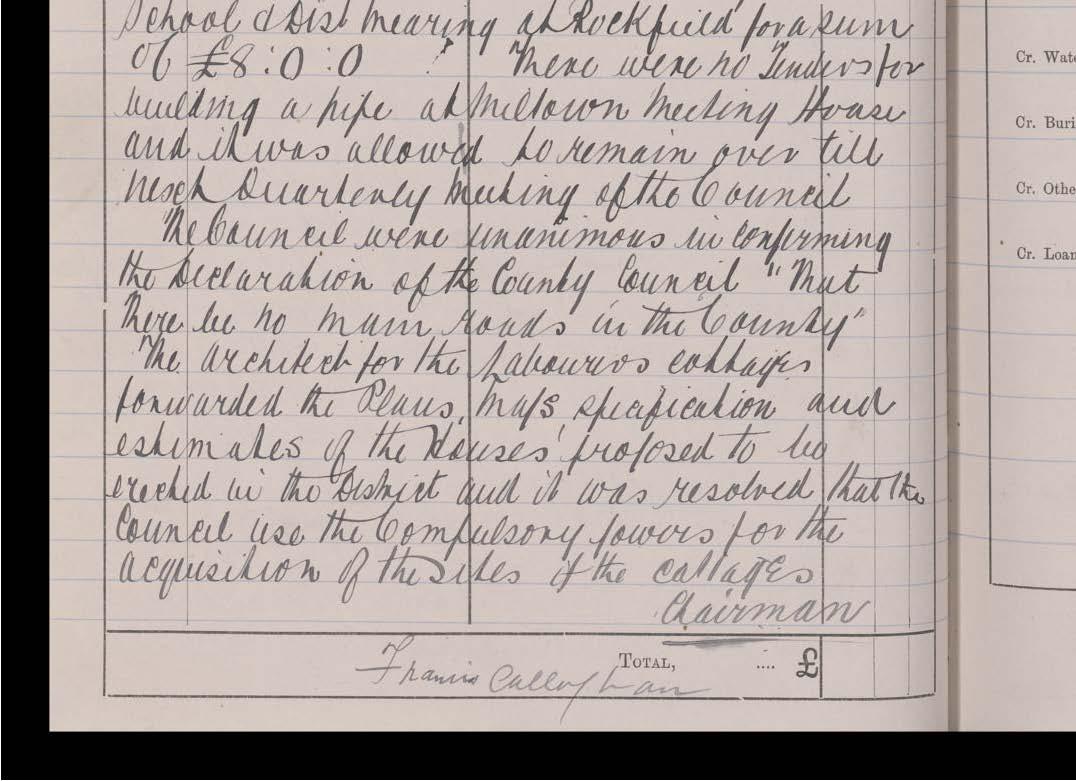 School & Dist mearing at Rockfield for a sum
of £8:0:0 There were no Tenders for
building a pipe at Miltown Meeting House
and it was allowed to remain over till
next Quarterly Meeting of the Council
The Council were unanimous in confirming
the Declaration of the County Council "That
there be no main roads in the County"
The architect for the Labourers cottages
forwarded the Plans, maps, specification and
estimates of the Houses proposed to be
erected in the District and it was resolved that the
Council use the Compulsory powers for the
acquisition of the sites of the cattages
Chairman
TOTAL, .... £
Francis Callaghan
Cr. Wate
Cr. Buri
Cr. Othe
Cr. Loan